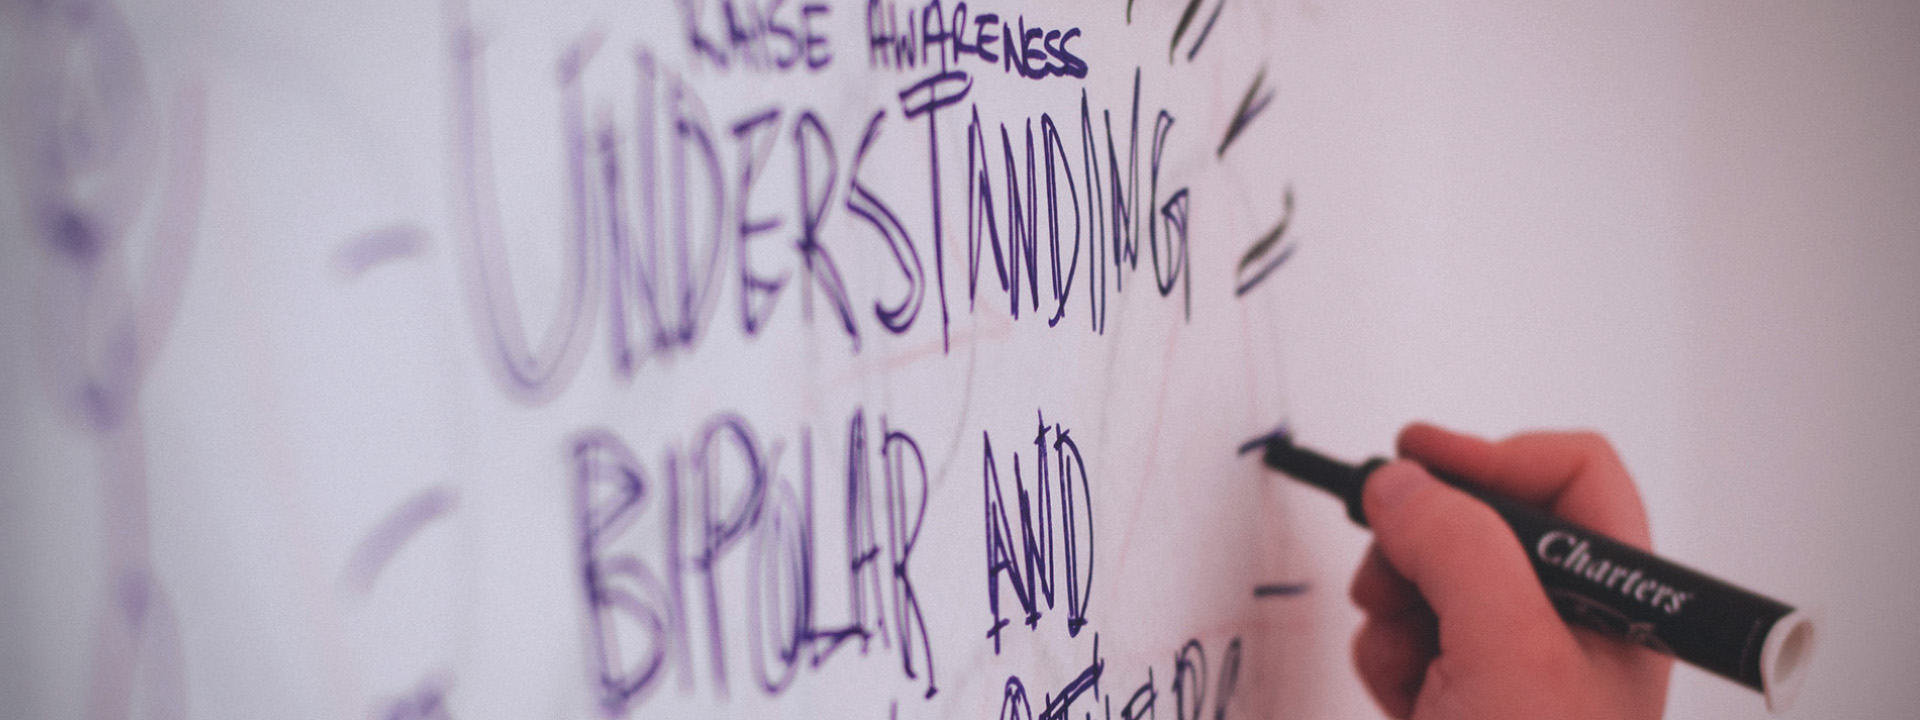 RAISE AWARENESS
UNDERSTANDING
BIPOLAR AND
OTHERS
Charters